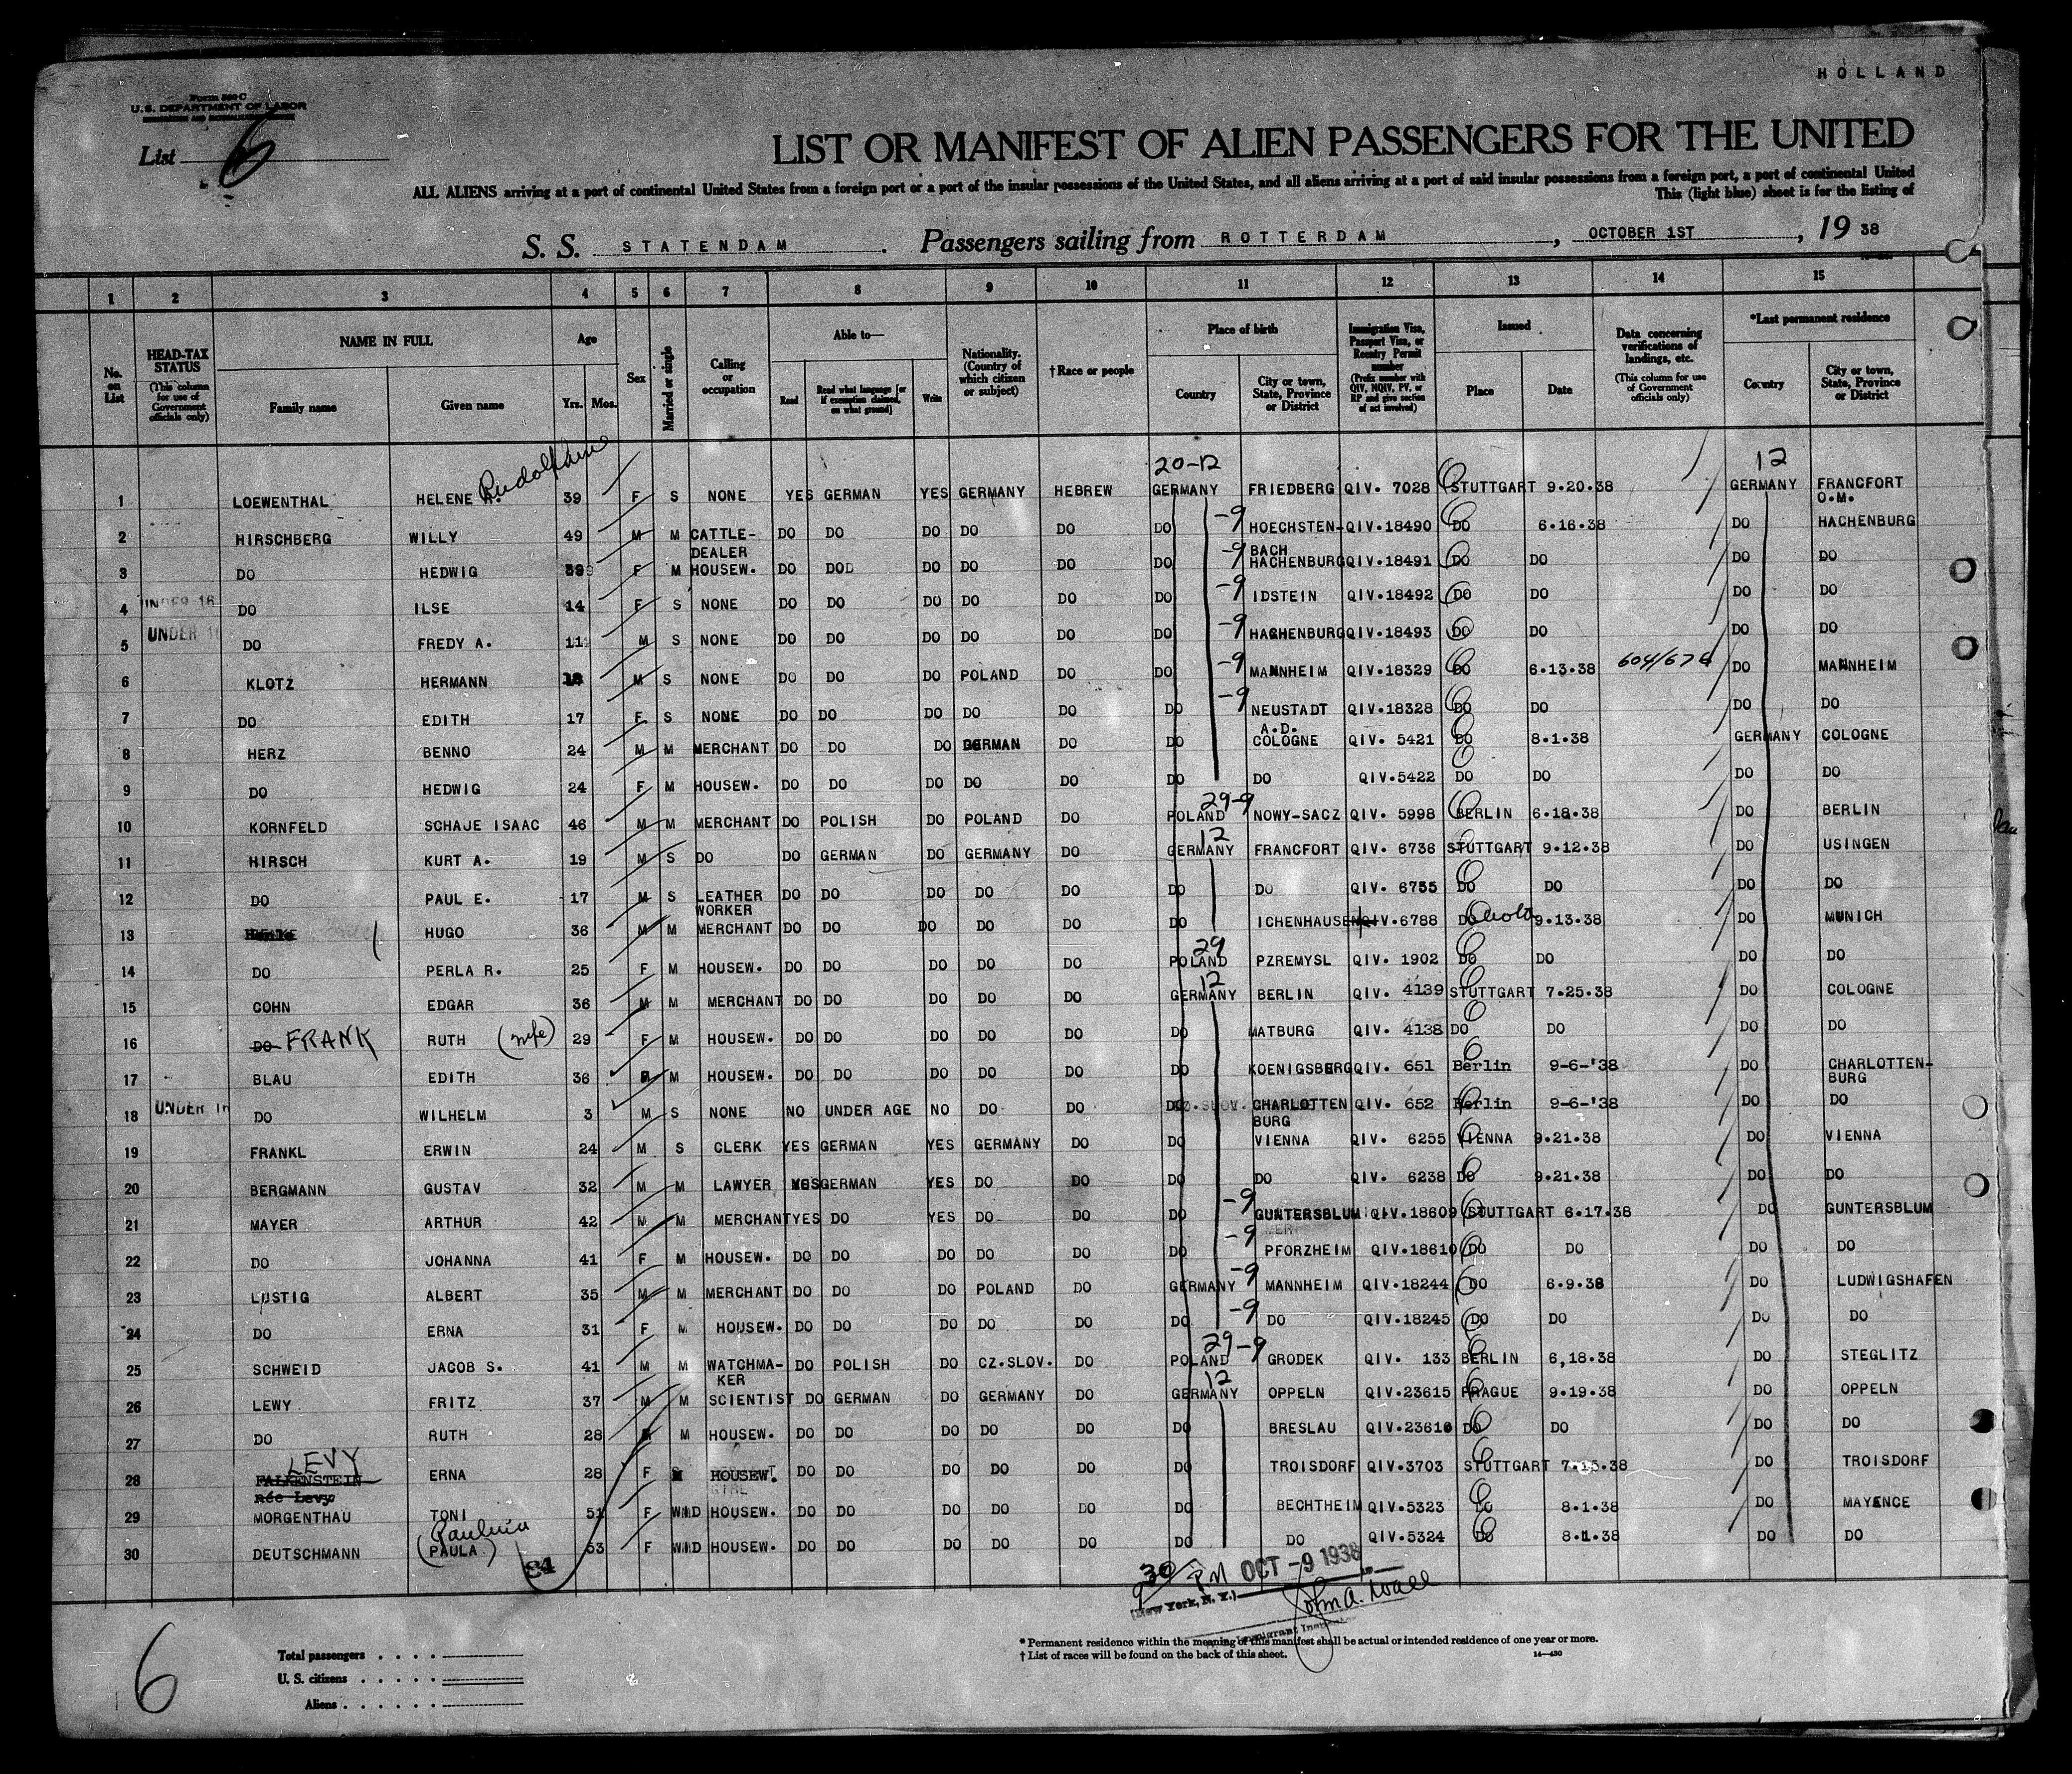 HOLLAND
Form 500 C
U.S. DEPARTMENT OF LABOR
List 6
LIST OR MANIFEST OF ALIEN PASSENGERS FOR THE UNITED
ALL ALIENS arriving at a port of continental United States from a foreign port or a port of the insular possessions of the United States, and all aliens arriving at a port of said insular possessions from a foreign port, a port of continental United
This (light blue) sheet is for the listing of
S. S. STATENDAM . Passengers sailing from ROTTERDAM , OCTOBER 1ST , 19 38
1 2 3 4 5 6 7 8 9 10 11 12 13 14 15
No. on List
HEAD-TAX STATUS (This column for use of Government officials only)
NAME IN FULL Family name Given name
Age Yrs. Mos.
Sex
Married or single
Calling or occupation
Able to— Read Read what language [or if exemption claimed, on what ground] Write
Nationality. (Country of which citizen or subject)
†Race or people
Place of birth Country City or town, State, Province or District
Immigration Visa, Passport Visa, or Reentry Permit number (Prefix number with QIV, NQIV, PV, or RP and give section of act involved)
Issued Place Date
Data concerning verifications of landings, etc. (This column for use of Government officials only)
*Last permanent residence Country City or town, State, Province or District
20-12 12
1 LOEWENTHAL HELENE R. 39 F S NONE YES GERMAN YES GERMANY HEBREW GERMANY FRIEDBERG QIV. 7028 STUTTGART 9.20.38 GERMANY FRANCFORT O.M.
2 HIRSCHBERG WILLY 49 M M CATTLE-DEALER DO DO DO DO DO DO -9 HOECHSTEN-BACH QIV.18490 DO 6.16.38 DO HACHENBURG
3 DO HEDWIG 39 F M HOUSEW. DO DO DO DO DO DO -9 HACHENBURG QIV.18491 DO DO DO DO
4 UNDER 16 DO ILSE 14 F S NONE DO DO DO DO DO DO -9 IDSTEIN QIV.18492 DO DO DO DO
5 UNDER 16 DO FREDY A. 11 M S NONE DO DO DO DO DO DO -9 HACHENBURG QIV.18493 DO DO DO DO
6 KLOTZ HERMANN 18 M S NONE DO DO DO POLAND DO DO -9 MANNHEIM QIV.18329 DO 6.13.38 604/676 DO MANNHEIM
7 DO EDITH 17 F S NONE DO DO DO DO DO DO -9 NEUSTADT A.D. QIV.18328 DO DO DO DO
8 HERZ BENNO 24 M M MERCHANT DO DO DO GERMAN DO DO COLOGNE QIV. 5421 DO 8.1.38 GERMANY COLOGNE
9 DO HEDWIG 24 F M HOUSEW. DO DO DO DO DO DO DO QIV.5422 DO DO DO DO
29-9
10 KORNFELD SCHAJE ISAAC 46 M M MERCHANT DO POLISH DO POLAND DO POLAND NOWY-SACZ QIV. 5998 BERLIN 6.18.38 DO BERLIN
12
11 HIRSCH KURT A. 19 M S DO DO GERMAN DO GERMANY DO GERMANY FRANCFORT QIV. 6736 STUTTGART 9.12.38 DO USINGEN
12 DO PAUL E. 17 M S LEATHER WORKER DO DO DO DO DO DO DO QIV. 6735 DO DO DO DO
13 HUGO 36 M M MERCHANT DO DO DO DO DO DO ICHENHAUSEN QIV.6788 DO 9.13.38 DO MUNICH
29
14 DO PERLA R. 25 F M HOUSEW. DO DO DO DO DO POLAND PZREMYSL QIV. 1902 DO DO DO DO
12
15 COHN EDGAR 36 M M MERCHANT DO DO DO DO DO GERMANY BERLIN QIV. 4139 STUTTGART 7.25.38 DO COLOGNE
16 DO FRANK RUTH (wife) 29 F M HOUSEW. DO DO DO DO DO DO MATBURG QIV. 4138 DO DO DO DO
17 BLAU EDITH 36 M HOUSEW. DO DO DO DO DO DO KOENIGSBERG QIV. 651 Berlin 9-6-'38 DO CHARLOTTEN-BURG
18 UNDER 16 DO WILHELM 3 M S NONE NO UNDER AGE NO DO DO DO CHARLOTTENBURG QIV. 652 Berlin 9-6-'38 DO DO
19 FRANKL ERWIN 24 M S CLERK YES GERMAN YES GERMANY DO DO VIENNA QIV. 6255 VIENNA 9.21.38 DO VIENNA
20 BERGMANN GUSTAV 32 M M LAWYER YES GERMAN YES DO DO DO DO QIV. 6238 DO 9.21.38 DO DO
21 MAYER ARTHUR 42 M M MERCHANT YES DO YES DO DO DO -9 GUNTERSBLUM QIV.18609 STUTTGART 6.17.38 DO GUNTERSBLUM
22 DO JOHANNA 41 F M HOUSEW. DO DO DO DO DO DO -9 PFORZHEIM QIV.18610 DO DO DO DO
23 LUSTIG ALBERT 35 M M MERCHANT DO DO DO POLAND DO GERMANY -9 MANNHEIM QIV.18244 DO 6.9.38 DO LUDWIGSHAFEN
24 DO ERNA 31 F M HOUSEW. DO DO DO DO DO DO -9 DO QIV.18245 DO DO DO DO
29-9
25 SCHWEID JACOB S. 41 M M WATCHMA-KER DO POLISH DO CZ.SLOV. DO POLAND GRODEK QIV. 133 BERLIN 6,18.38 DO STEGLITZ
12
26 LEWY FRITZ 37 M M SCIENTIST DO GERMAN DO GERMANY DO GERMANY OPPELN QIV.23615 PRAGUE 9.19.38 DO OPPELN
27 DO RUTH 28 M HOUSEW. DO DO DO DO DO DO BRESLAU QIV.23616 DO DO DO DO
LEVY
28 FALKENSTEIN née Levy ERNA 28 F HOUSEW. DO DO DO DO DO DO TROISDORF QIV.3703 STUTTGART 7.15.38 DO TROISDORF
29 MORGENTHAU TONI 51 F WID HOUSEW. DO DO DO DO DO DO BECHTHEIM QIV.5323 DO 8.1.38 DO MAYENCE
30 DEUTSCHMANN (PAULA) 53 F WID HOUSEW. DO DO DO DO DO DO DO QIV.5324 DO 8.1.38 DO DO
S4
9 30 PM OCT -9 1938
(New York, N. Y.) John A. Wall
Immigrant Inspector
6
Total passengers
U. S. citizens
Aliens
* Permanent residence within the meaning of this manifest shall be actual or intended residence of one year or more.
† List of races will be found on the back of this sheet. 14—430